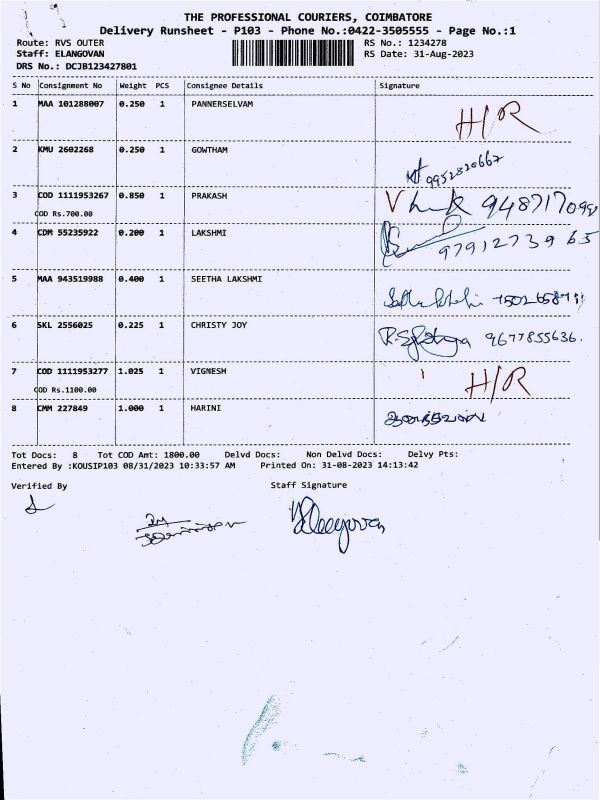 THE PROFESSIONAL COURIERS, COIMBATORE
Delivery Runsheet - P103 - Phone No.:0422-3505555 - Page No.:1
Route: RVS OUTER RS No.: 1234278
Staff: ELANGOVAN RS Date: 31-Aug-2023
DRS No.: DCJB123427801
S No Consignment No Weight PCS Consignee Details Signature
1 MAA 101288007 0.250 1 PANNERSELVAM H/R
2 KMU 2602268 0.250 1 GOWTHAM 9952820667
3 COD 1111953267 0.850 1 PRAKASH
COD Rs.700.00
4 CDM 55235922 0.200 1 LAKSHMI 9791273965
5 MAA 943519988 0.400 1 SEETHA LAKSHMI
6 SKL 2556025 0.225 1 CHRISTY JOY 9677855636.
7 COD 1111953277 1.025 1 VIGNESH H/R
COD Rs.1100.00
8 CMM 227849 1.000 1 HARINI
Tot Docs: 8 Tot COD Amt: 1800.00 Delvd Docs: Non Delvd Docs: Delvy Pts:
Entered By :KOUSIP103 08/31/2023 10:33:57 AM Printed On: 31-08-2023 14:13:42
Verified By Staff Signature